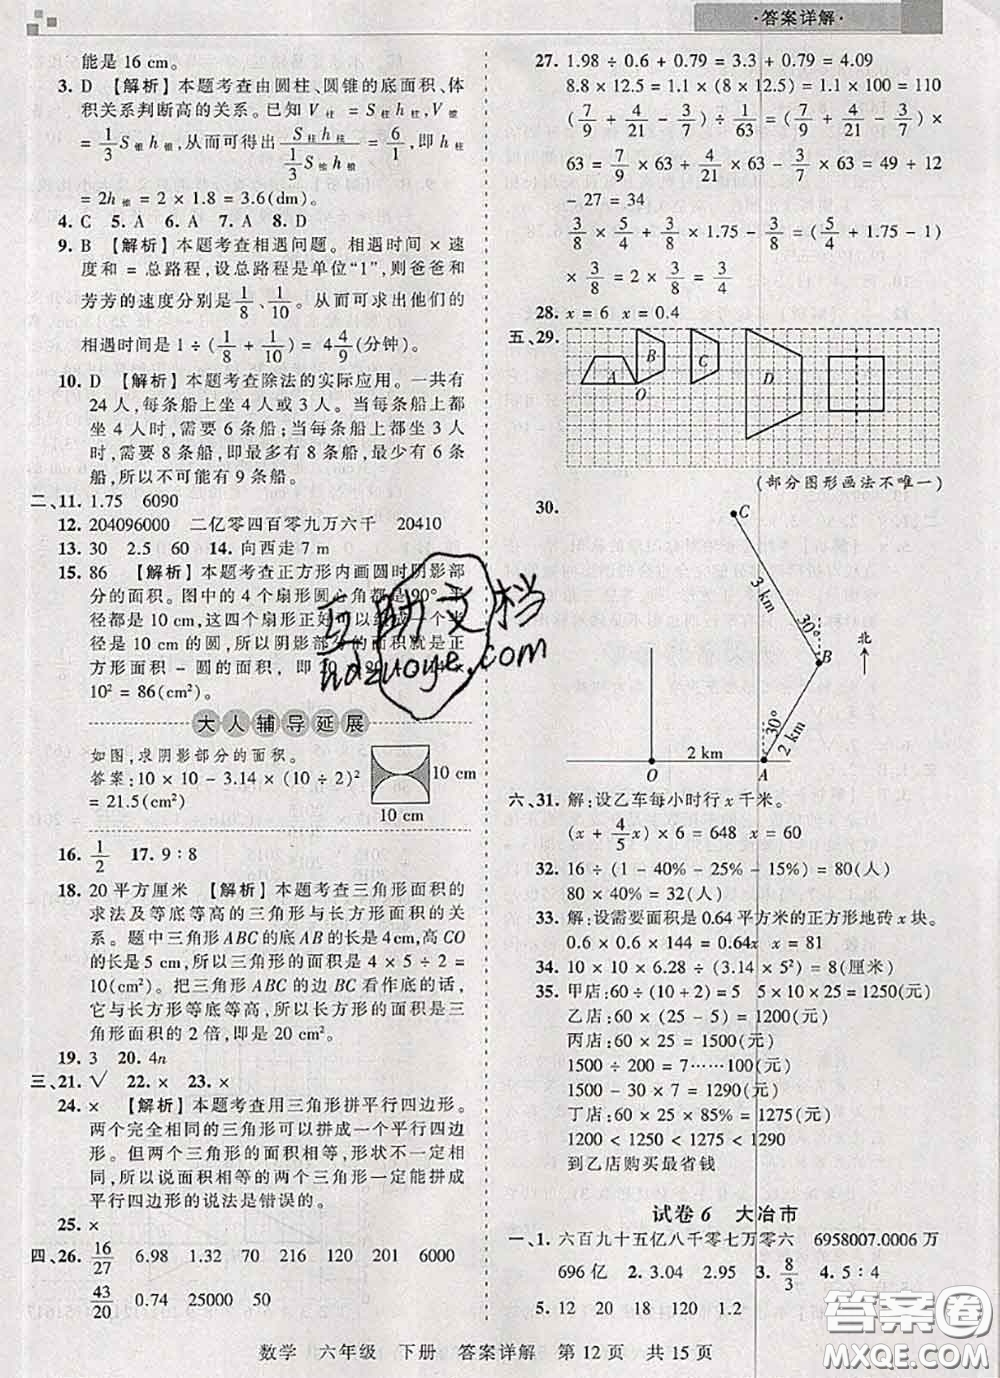 ·答案详解·
能是 16 cm。
3. D 【解析】本题考查由圆柱、圆锥的底面积、体
积关系判断高的关系。已知 V柱 = S柱h柱,V锥
= 1/3 S锥h锥,从而可得出 S柱h柱/(1/3 S锥h锥) = 6/1,即 h柱
= 2h锥 = 2 × 1.8 = 3.6(dm)。
4. C 5. A 6. A 7. A 8. D
9. B 【解析】本题考查相遇问题。相遇时间 × 速
度和 = 总路程,设总路程是单位“1”,则爸爸和
芳芳的速度分别是 1/8、1/10。从而可求出他们的
相遇时间是 1 ÷ (1/8 + 1/10) = 4 4/9(分钟)。
10. D 【解析】本题考查除法的实际应用。一共有
24 人,每条船上坐 4 人或 3 人。当每条船上都
坐 4 人时,需要 6 条船;当每条船上都坐 3 人
时,需要 8 条船,即最多有 8 条船,最少有 6 条
船,所以不可能有 9 条船。
二、11. 1.75 6090
12. 204096000 二亿零四百零九万六千 20410
13. 30 2.5 60 14. 向西走 7 m
15. 86 【解析】本题考查正方形内画圆时阴影部
分的面积。图中的 4 个扇形圆心角都是 90°,半
径都是 10 cm,这四个扇形正好可以组成一个半
径是 10 cm 的圆,所以阴影部分的面积 = 正
方形面积 - 圆的面积,即
10² = 86(cm²)。
大人辅导延展
如图,求阴影部分的面积。
答案:10 × 10 - 3.14 × (10 ÷ 2)²
= 21.5(cm²)
10 cm
10 cm
16. 1/2 17. 9∶8
18. 20 平方厘米 【解析】本题考查三角形面积的
求法及等底等高的三角形与长方形面积的关
系。题中三角形 ABC 的底 AB 的长是 4 cm,高 CO
的长是 5 cm,所以三角形的面积是 4 × 5 ÷ 2 =
10(cm²)。把三角形 ABC 的边 BC 看作底的话,
它与长方形等底等高,所以长方形的面积是三
角形面积的 2 倍,即是 20 cm²。
19. 3 20. 4n
三、21. √ 22. × 23. ×
24. × 【解析】本题考查用三角形拼平行四边形。
两个完全相同的三角形可以拼成一个平行四边
形。但两个三角形的面积相等,形状不一定相
同,所以说面积相等的两个三角形一定能拼成
平行四边形的说法是错误的。
25. ×
四、26. 16/27 6.98 1.32 70 216 120 201 6000
43/20 0.74 25000 50
27. 1.98 ÷ 0.6 + 0.79 = 3.3 + 0.79 = 4.09
8.8 × 12.5 = 1.1 × (8 × 12.5) = 1.1 × 100 = 110
(7/9 + 4/21 - 3/7) ÷ 1/63 = (7/9 + 4/21 - 3/7) ×
63 = 7/9 × 63 + 4/21 × 63 - 3/7 × 63 = 49 + 12
- 27 = 34
3/8 × 5/4 + 3/8 × 1.75 - 3/8 = (5/4 + 1.75 - 1)
× 3/8 = 2 × 3/8 = 3/4
28. x = 6 x = 0.4
五、29.
A B C D
O
(部分图形画法不唯一)
30.
C
3 km
30°
北
B
30°
2 km
2 km
O A
六、31. 解:设乙车每小时行 x 千米。
(x + 4/5 x) × 6 = 648 x = 60
32. 16 ÷ (1 - 40% - 25% - 15%) = 80(人)
80 × 40% = 32(人)
33. 解:设需要面积是 0.64 平方米的正方形地砖 x 块。
0.6 × 0.6 × 144 = 0.64x x = 81
34. 10 × 10 × 6.28 ÷ (3.14 × 5²) = 8(厘米)
35. 甲店:60 ÷ (10 + 2) = 5 5 × 10 × 25 = 1250(元)
乙店:60 × (25 - 5) = 1200(元)
丙店:60 × 25 = 1500(元)
1500 ÷ 200 = 7……100(元)
1500 - 30 × 7 = 1290(元)
丁店:60 × 25 × 85% = 1275(元)
1200 < 1250 < 1275 < 1290
到乙店购买最省钱
试卷 6 大冶市
一、1. 六百九十五亿八千零七万零六 6958007.0006 万
696 亿 2. 3.04 2.95 3. 8/3 4. 5∶4
5. 12 20 18 120 1.2
数学 六年级 下册 答案详解 第 12 页 共 15 页
互助文档
hdzuoye.com
答案圈
MXQE.COM